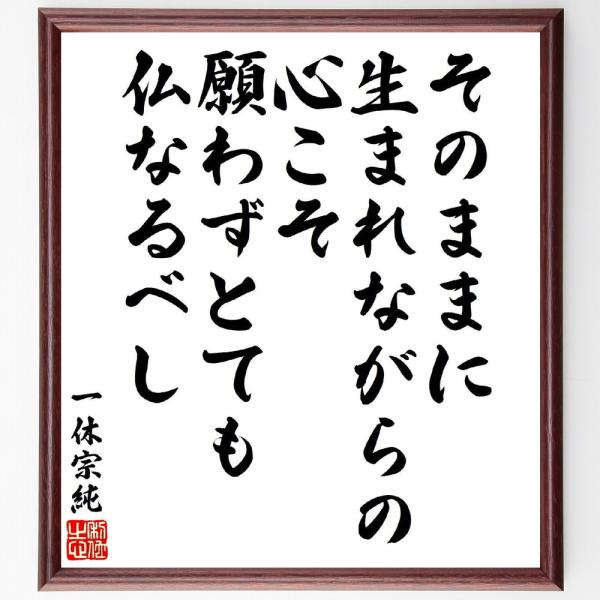 そのままに
生まれながらの
心こそ
願わずとても
仏なるべし
一休宗純